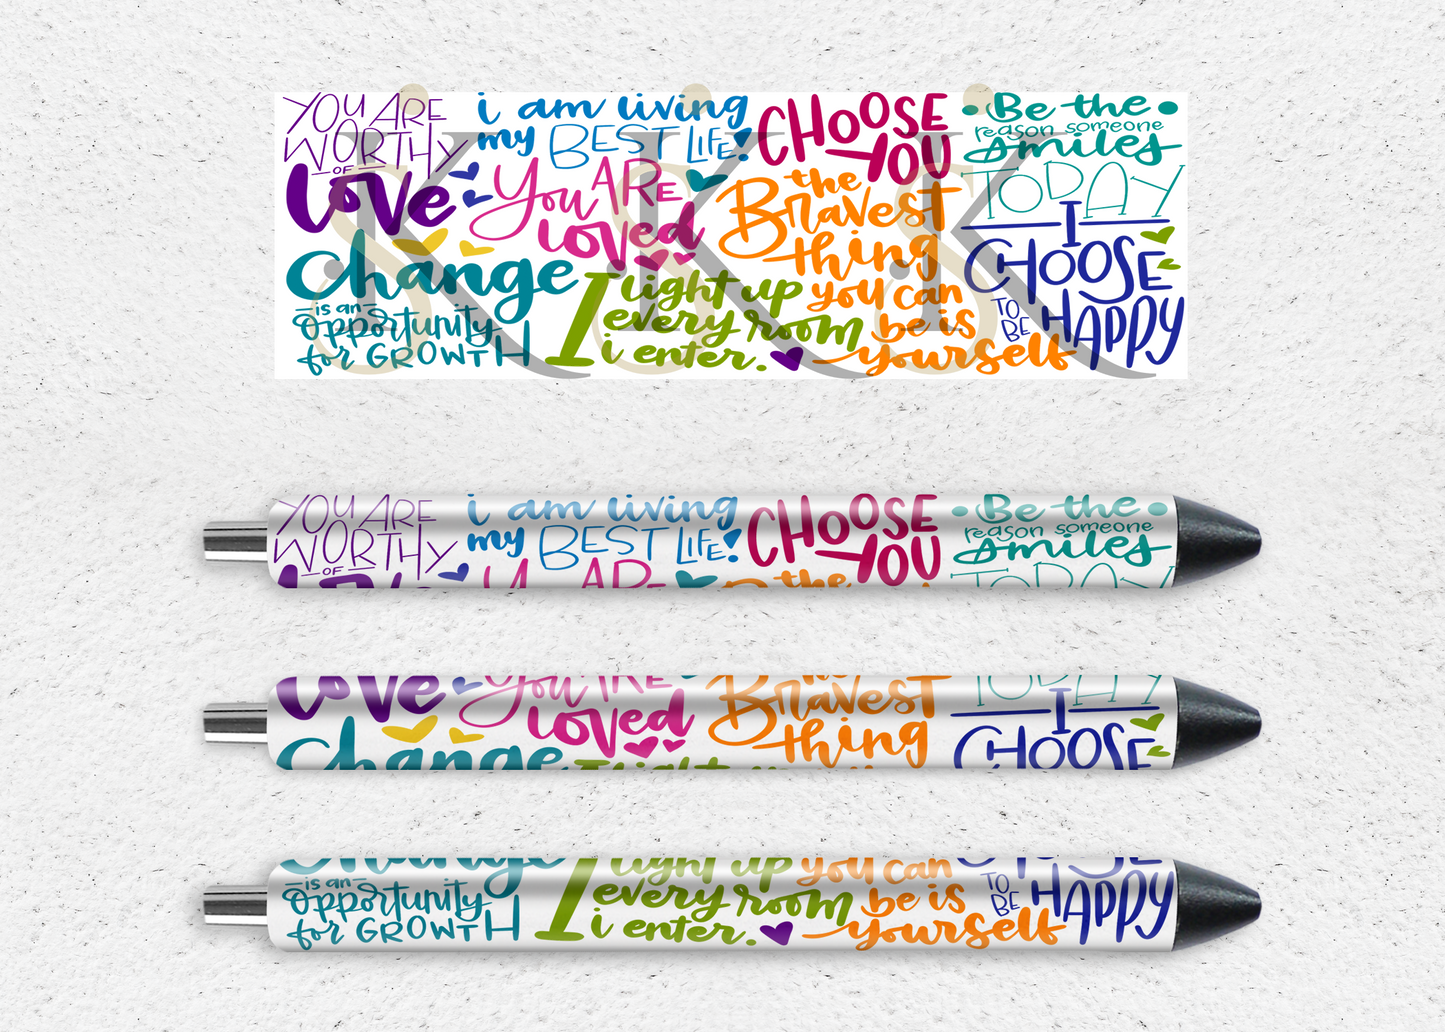 YOU ARE
WORTHY
OF
Love
i am living
my BEST LIFE!
CHOOSE
YOU
Be the
reason someone
smiles
TODAY
You ARE
loved
the
Bravest
thing
you can
be is
yourself
I
CHOOSE
TO
BE
HAPPY
Change
is an
opportunity
for GROWTH
I light up
every room
i enter.
S K S K S K
YOU ARE
WORTHY
OF
i am living
my BEST LIFE!
CHOOSE
YOU
Be the
reason someone
smiles
TODAY
Love
You ARE
loved
Bravest
thing
TODAY
I
CHOOSE
Change
Change
is an
opportunity
for GROWTH
I light up
every room
i enter.
you can
be is
yourself
TO
BE
HAPPY